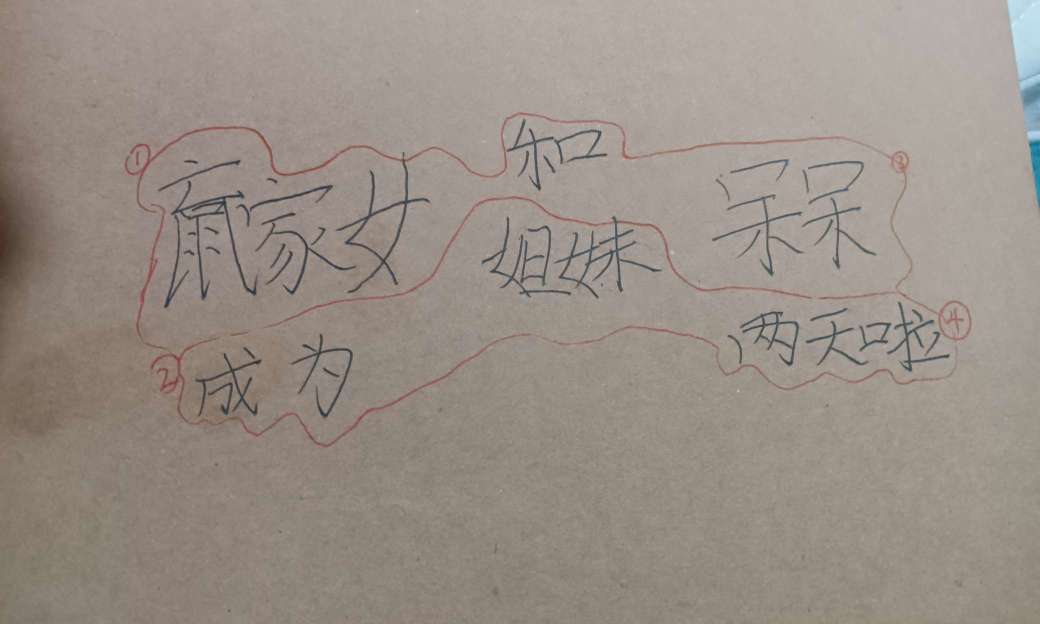 ① 家女 和 呆呆 ③
② 成为 姐妹 两天啦 ④